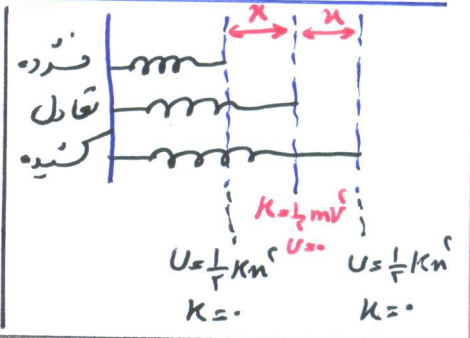 x x
فشرده
تعادل
کشیده
K=½mv²
U=۰
U=½Kx² U=½Kx²
K=۰ K=۰